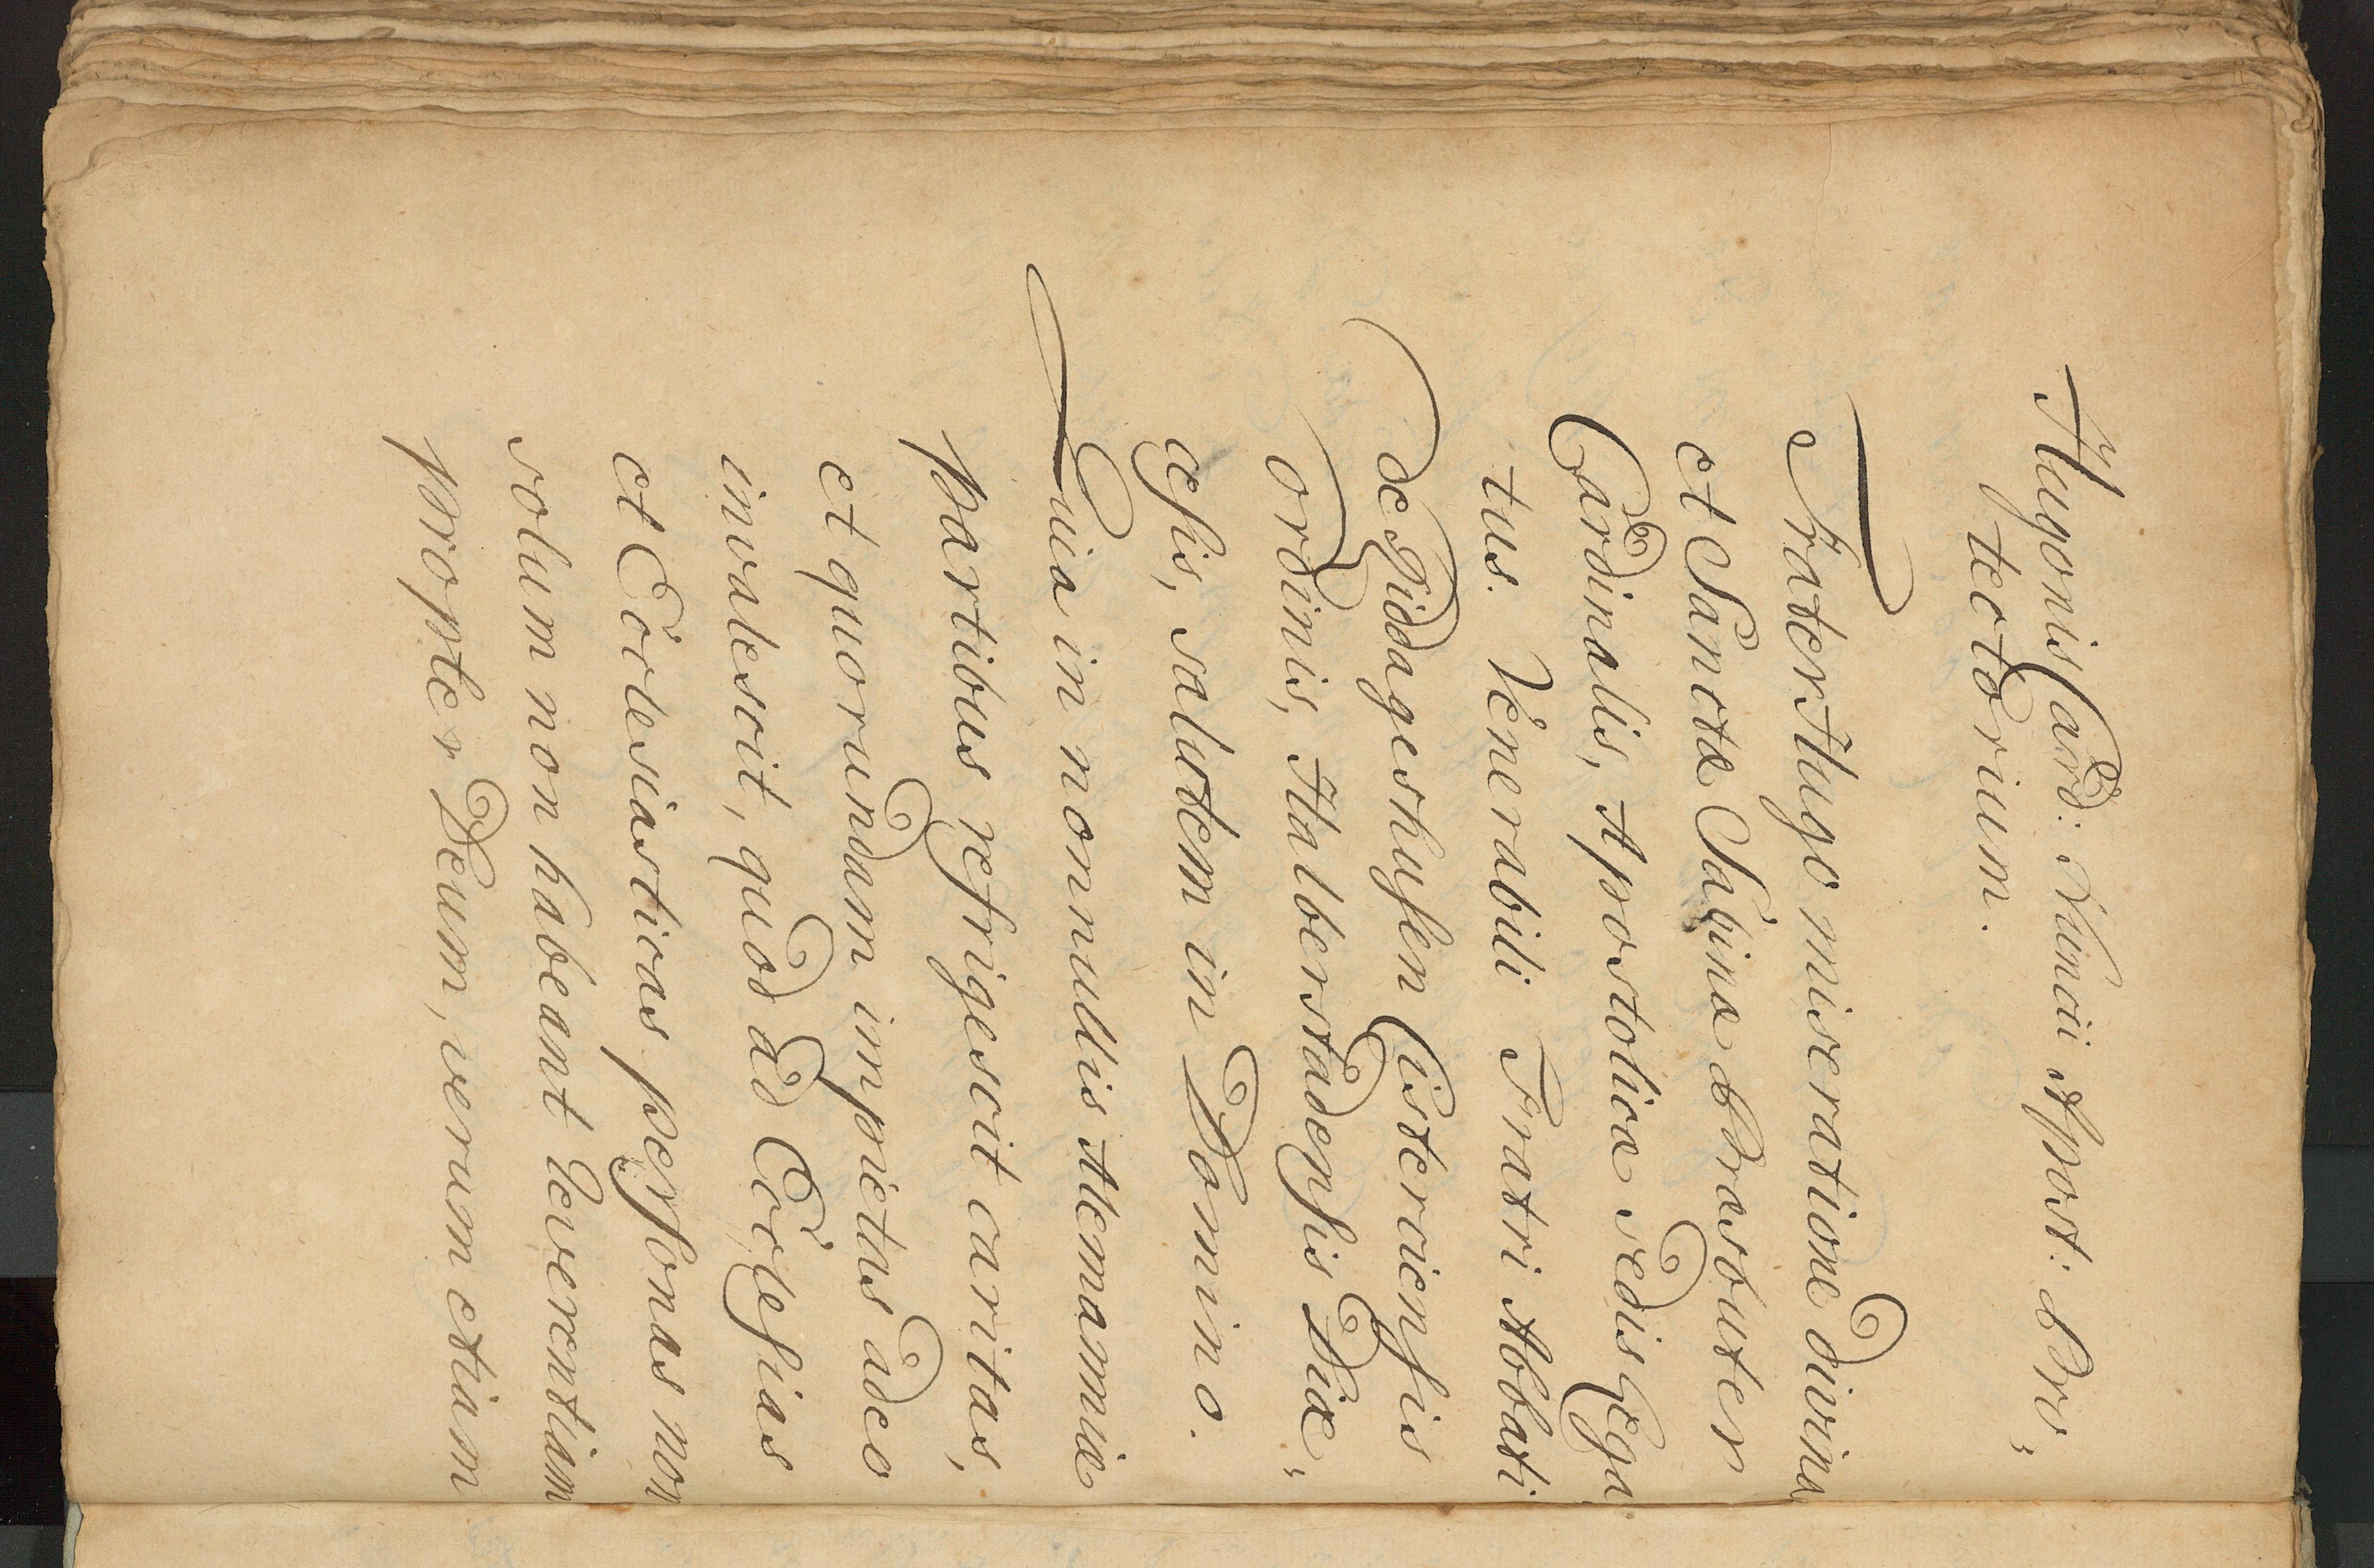 Hugonis Card: Nuncii Apost: Pro„
tectorium.
Frater Hugo miseratione divina
et Sanctæ Sabinæ Præsbuter
Cardinalis, Apostolicæ sedis Lega
tus. Venerabili Fratri Abbati
de Riddageshusen Cisterciensis
ordinis, Halberstadensis Diæ„
cesis, salutem in Domino.
Quia in nonnullis Alemanniæ
partibus refrigescit caritas,
et quorundam impietas adeo
invalescit, quod ad Ecclesias
et Ecclesiasticas personas non
solum non habeant Reverentiam
propter Deum, verum etiam